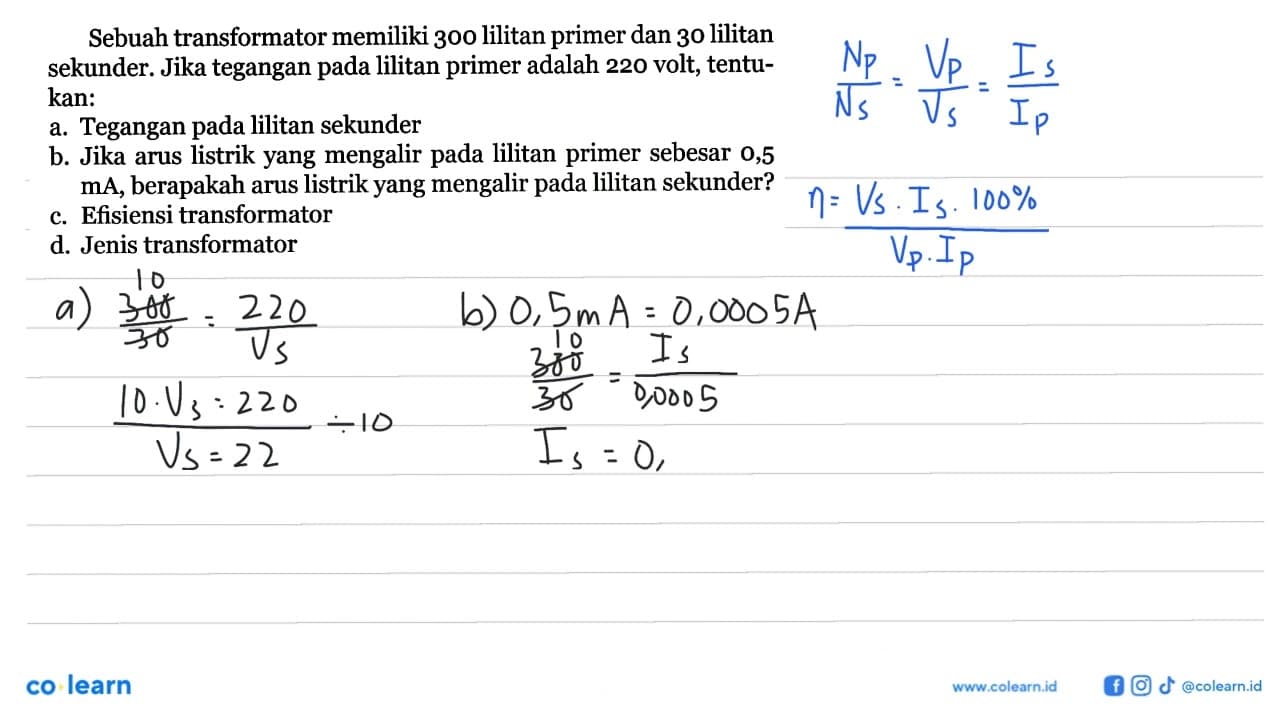 Sebuah transformator memiliki 300 lilitan primer dan 30 lilitan
sekunder. Jika tegangan pada lilitan primer adalah 220 volt, tentu-
kan:
a. Tegangan pada lilitan sekunder
b. Jika arus listrik yang mengalir pada lilitan primer sebesar 0,5
mA, berapakah arus listrik yang mengalir pada lilitan sekunder?
c. Efisiensi transformator
d. Jenis transformator
Np/Ns = Vp/Vs = Is/Ip
η = Vs . Is . 100% / Vp . Ip
a) 300/30 = 220/Vs
10
10 . Vs = 220
÷10
Vs = 22
b) 0,5 mA = 0,0005A
10
300/30 = Is/0,0005
Is = 0,
co learn
www.colearn.id
@colearn.id